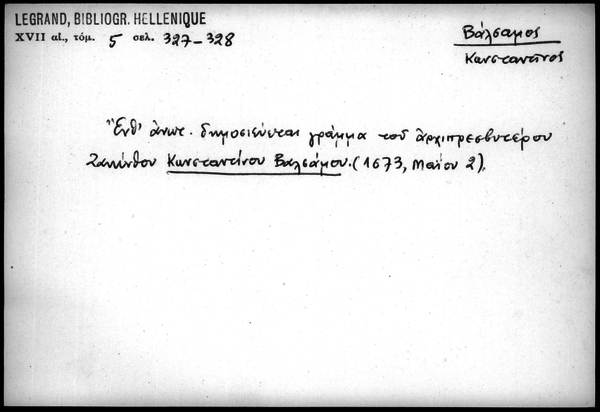 LEGRAND, BIBLIOGR. HELLENIQUE
XVII αἰ., τόμ. 5 σελ. 327-328
Βάλσαμος
Κωνσταντῖνος
Ἔνθ' ἀνωτ. δημοσιεύεται γράμμα τοῦ ἀρχιπρεσβυτέρου
Ζακύνθου Κωνσταντίνου Βαλσάμου. (1673, Μαΐου 2).